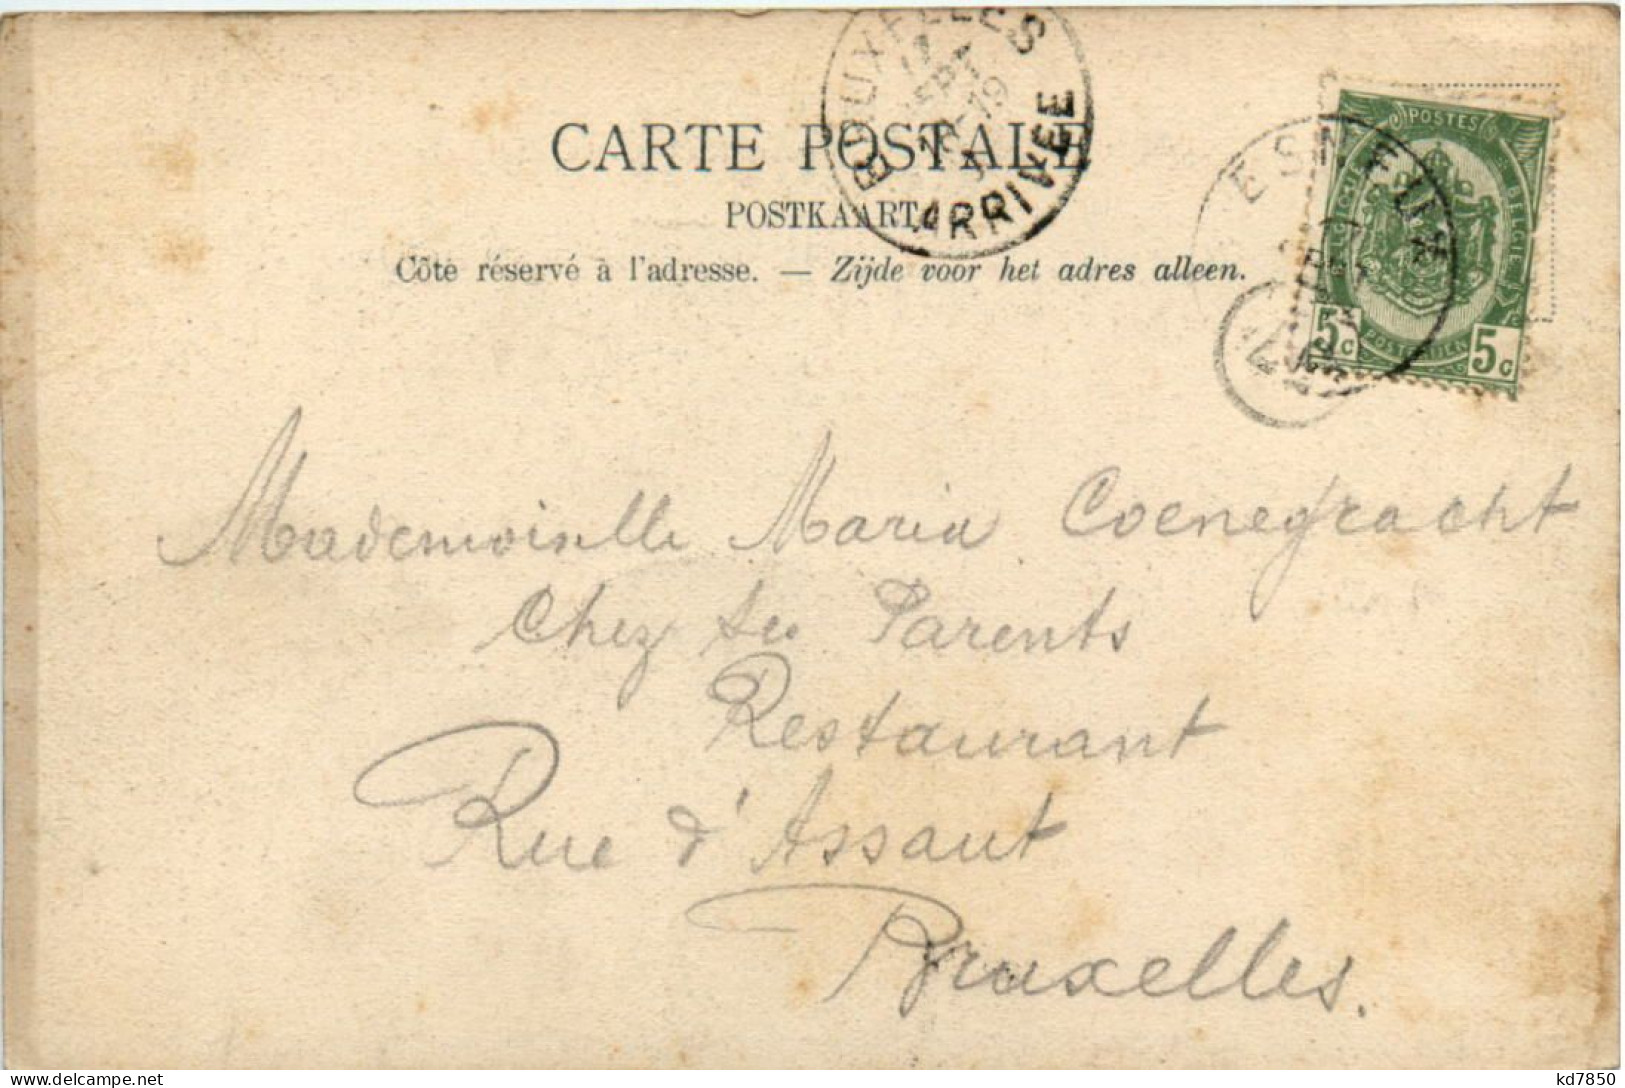 BRUXELLES
SEPT
ARRIVEE
CARTE POSTALE
POSTKAART
Côté réservé à l'adresse. — Zijde voor het adres alleen.
ESNEUX
POSTES
BELGIQUE
BELGIE
POSTERIJEN
5c 5c
Mademoiselle Maria Coenegracht
Chez ses Parents
Restaurant
Rue d'Assaut
Bruxelles.
kd7850